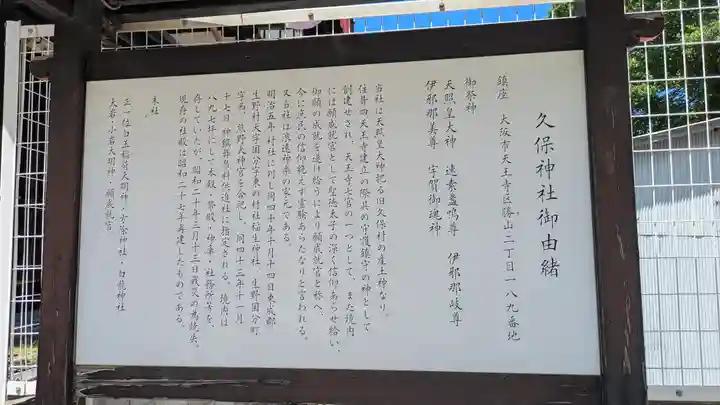 久保神社御由緒
鎮座 大阪市天王寺区勝山二丁目一八九番地
御祭神
天照皇大神 速素盞鳴尊 伊邪那岐尊
伊邪那美尊 宇賀御魂神
当社は天照皇大神祀る旧久保村の産土神なり。
往昔四天王寺建立の際其の守護鎮守の神として
創建せされ、天王寺七宮の一つとして、また境内
には願成就宮として聖徳太子の深く信仰あらせ給い、
御願の成就を遂げ給うにより願成就宮と称へ、
今に庶民の信仰絶えず霊験あらたなりと言われる。
又当社は浪速神楽の家元である。
明治五年村社に列し同四十年十月十四日東成郡
生野村大字国分字東の村社稲生神社、生野国分町
字西、熊野大神宮を合祀し、同四十三年十一月
十七日、神饌幣帛料供進社に指定される。境内は
八九七坪にして本殿、幣殿、神楽、社務所等を、
存していたが、昭和二十年三月十三日戦災の為焼失。
現存の社殿は昭和二十七年再建したものである。
末社
正一位白玉稲荷大明神・方除神社・白龍神社
大岩・小岩大明神・願成就宮